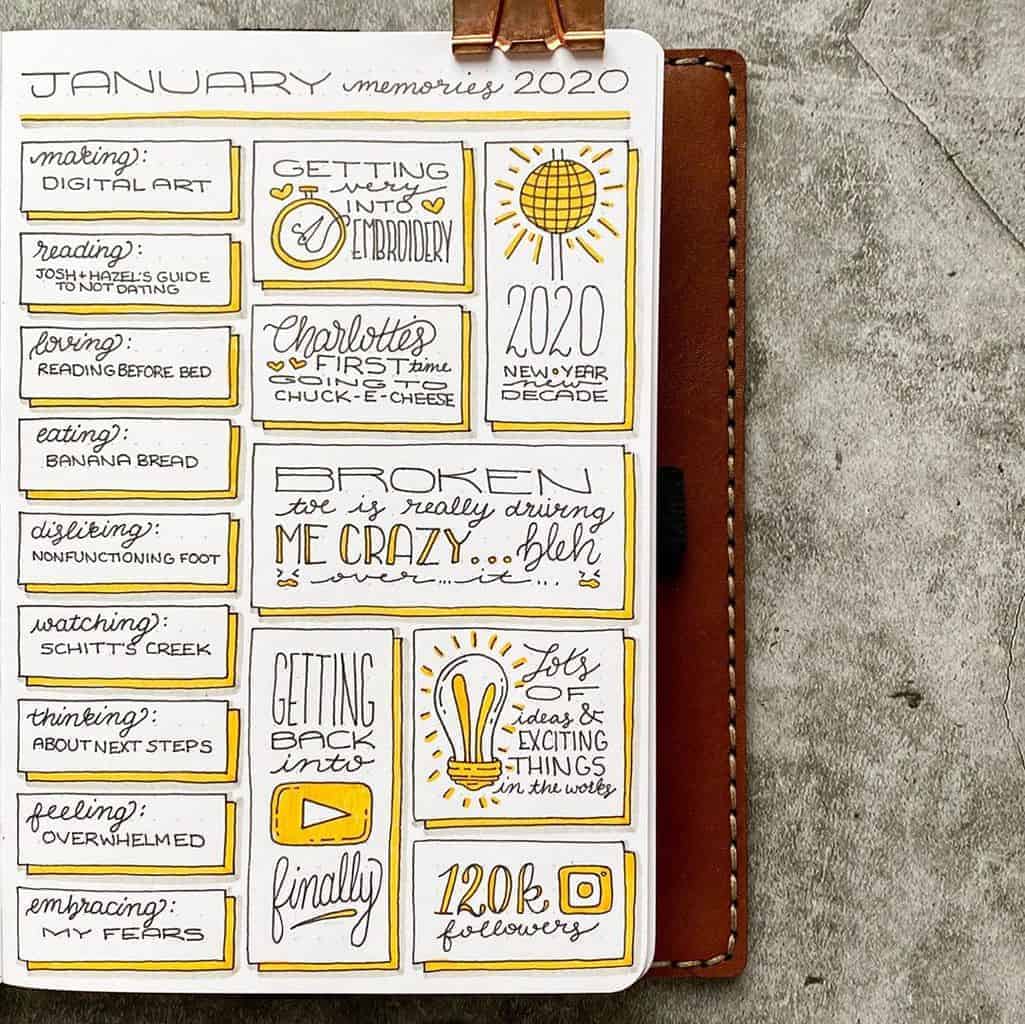 JANUARY memories 2020
making:
DIGITAL ART
reading:
JOSH + HAZEL'S GUIDE
TO NOT DATING
loving:
READING BEFORE BED
eating:
BANANA BREAD
disliking:
NONFUNCTIONING FOOT
watching:
SCHITT'S CREEK
thinking:
ABOUT NEXT STEPS
feeling:
OVERWHELMED
embracing:
MY FEARS
GETTING
very
INTO
EMBROIDERY
Charlotte's
FIRST time
GOING TO
CHUCK-E-CHEESE
2020
NEW•YEAR
new
DECADE
BROKEN
toe is really driving
ME CRAZY...bleh
over...it...
GETTING
BACK
into
finally
Lots
OF
ideas &
EXCITING
THINGS
in the works
120k
followers